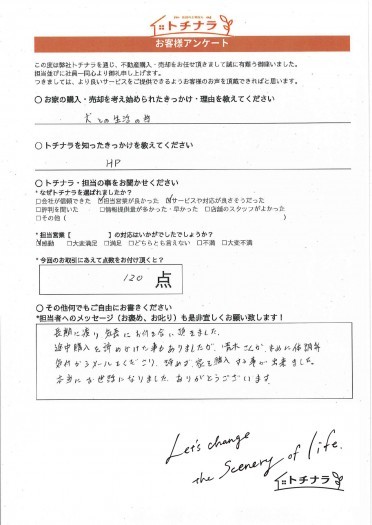 トチナラ
お客様アンケート
この度は弊社トチナラを通じ、不動産購入・売却をお任せ頂きまして誠に有難う御座いました。
担当並びに社員一同心より御礼申し上げます。
つきましては、より良いサービスをご提供できるようお客様のお声を頂戴できればと思います。
〇 お家の購入・売却を考え始められたきっかけ・理由を教えてください
犬との生活の為
〇 トチナラを知ったきっかけを教えてください
HP
〇 トチナラ・担当の事をお聞かせください
* なぜトチナラを選ばれましたか？
□会社が信頼できた ☑担当営業が良かった ☑サービスや対応が良さそうだった
□評判を聞いた □情報提供量が多かった・早かった □店舗のスタッフがよかった
□その他（ ）
* 担当営業【 】の対応はいかがでしたでしょうか？
☑感動 □大変満足 □満足 □どちらとも言えない □不満 □大変不満
* 今回のお取引にあえて点数をお付け頂くと？
120 点
〇 その他何でもご自由にお書きください
*担当者へのメッセージ（お褒め、お叱り）も是非宜しくお願い致します！
長期に渡り 気長にお付き合い頂きました。
途中購入を諦めかけた事もありましたが、清水さんが
気にかけメールをくださり、諦めず家を購入する事が出来ました。
本当にお世話になりました。ありがとうございます。
Let's change
the Scenery of life.
トチナラ